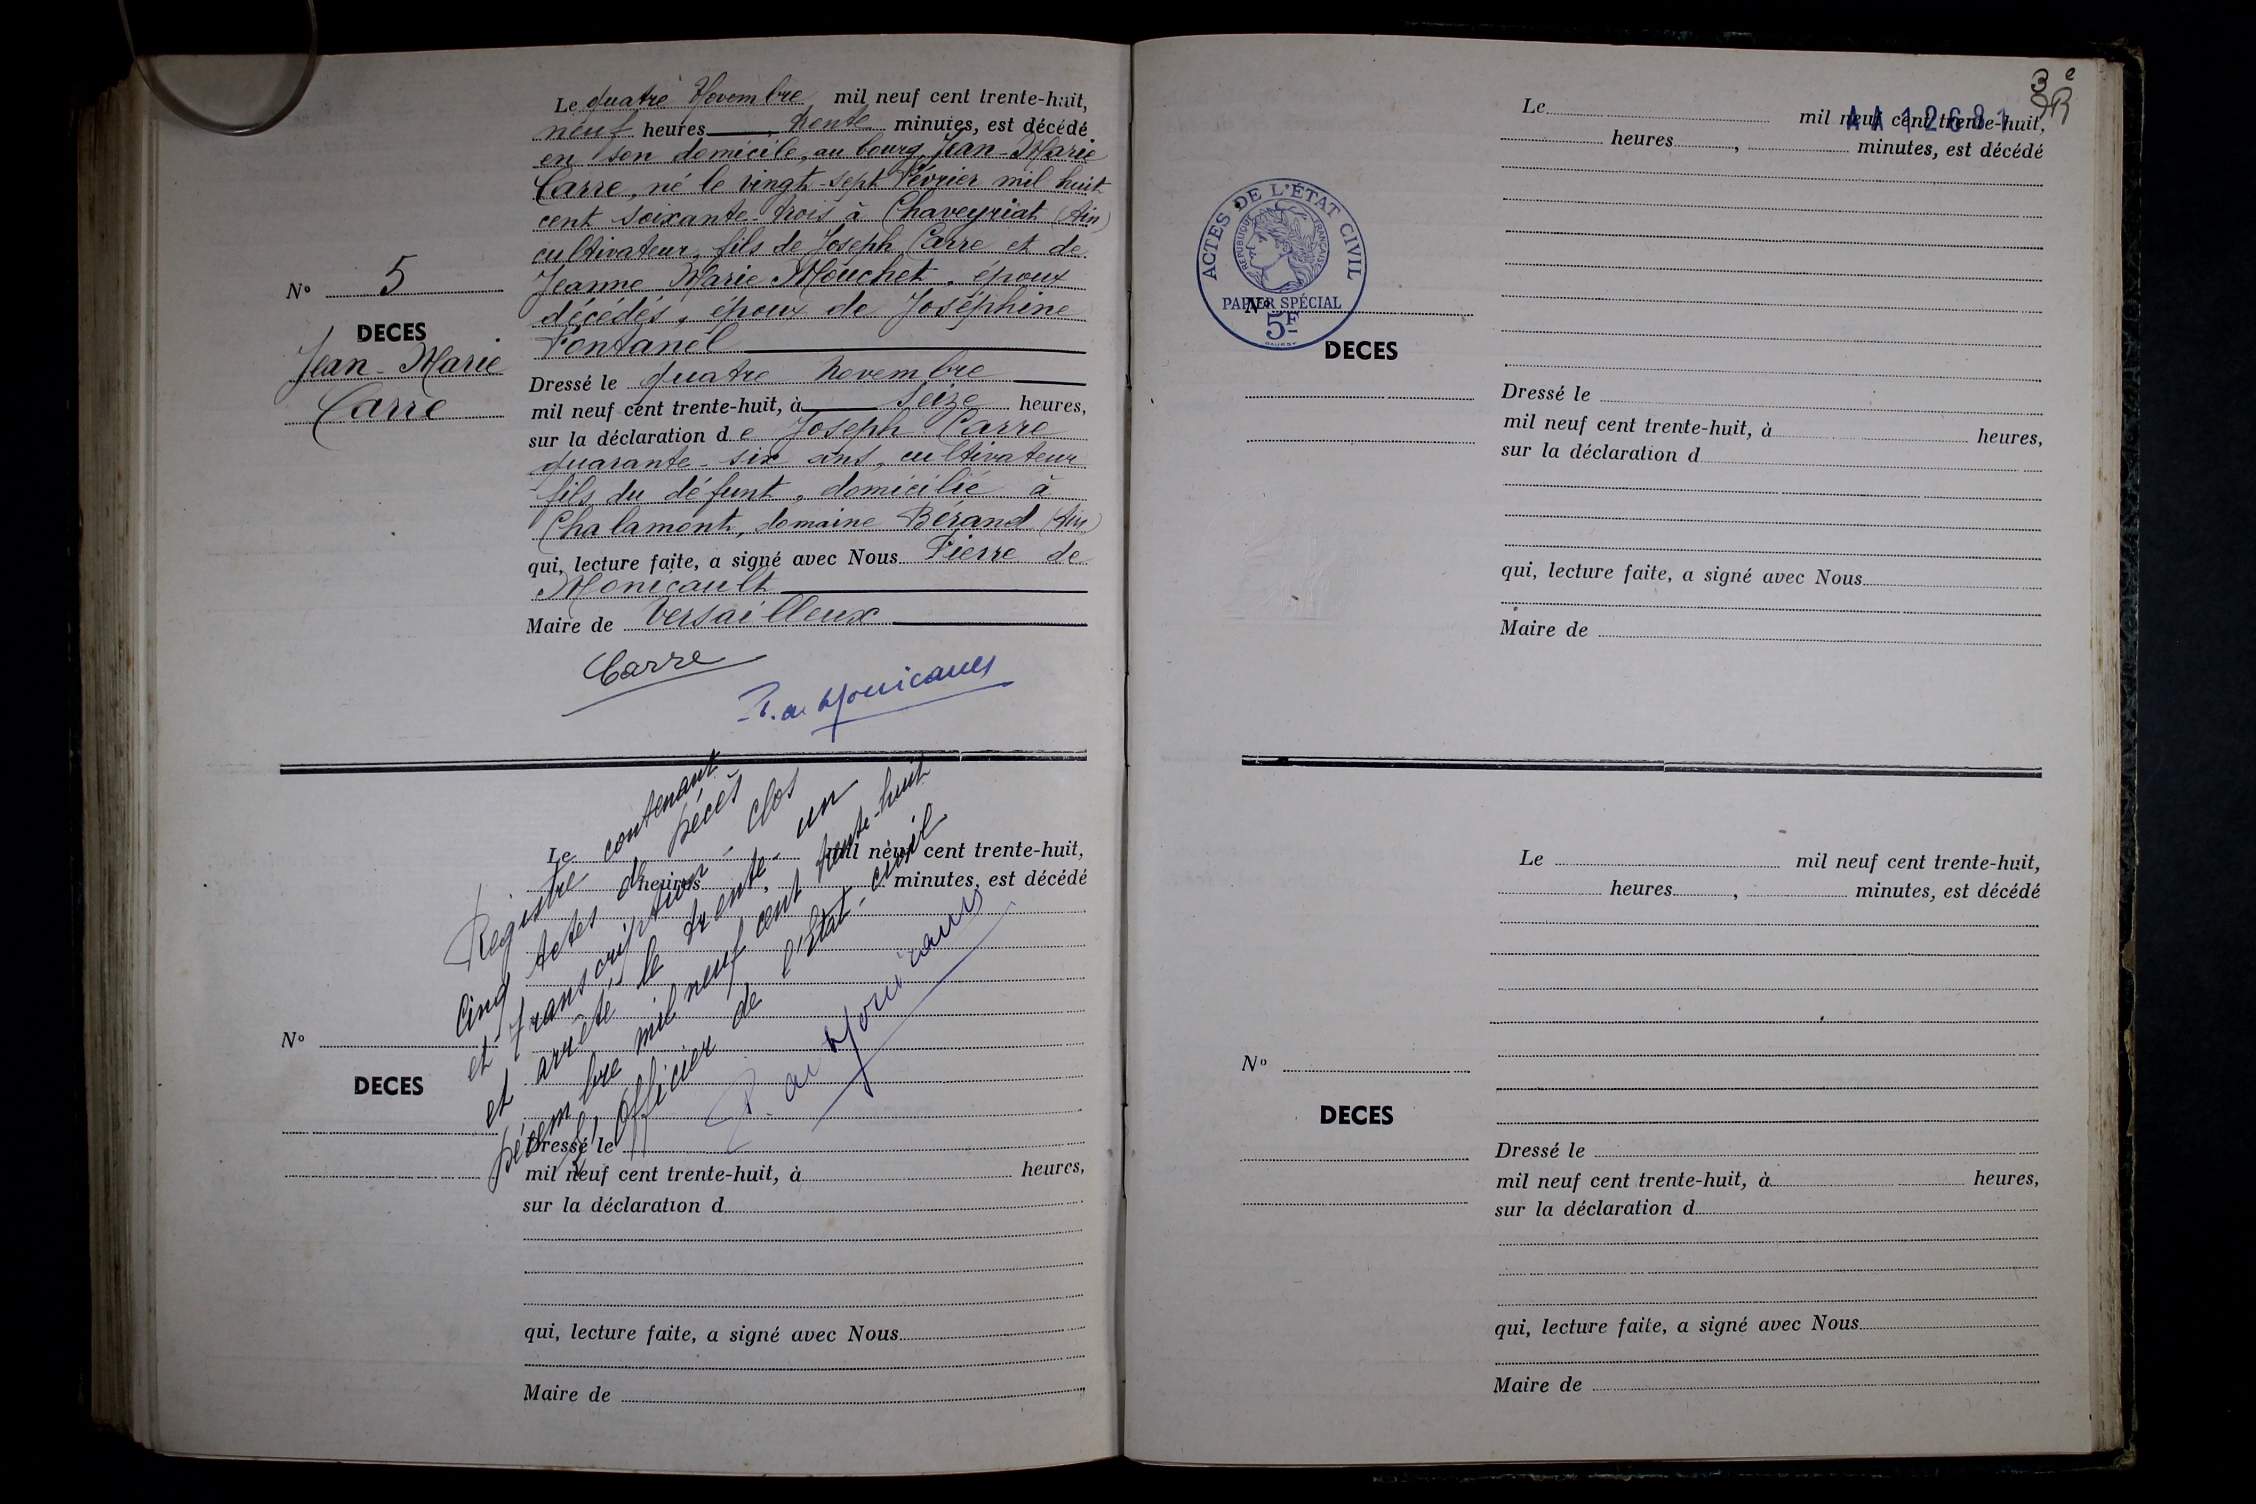 Le quatre Novembre mil neuf cent trente-huit,
neuf heures, trente minutes, est décédé
en son domicile, au bourg, Jean-Marie
Carre, né le vingt-sept Février mil huit
cent soixante-trois à Chaveyriat (Ain)
cultivateur, fils de Joseph Carre et de
Jeanne Marie Mouchet, époux
décédés, époux de Joséphine
Fontanel
N° 5
DECES
Jean-Marie
Carre
Dressé le quatre novembre
mil neuf cent trente-huit, à seize heures,
sur la déclaration de Joseph Carre
quarante-six ans, cultivateur
fils du défunt, domicilié à
Chalamont, domaine Bérand (Ain)
qui, lecture faite, a signé avec Nous Pierre de
Monicault
Maire de Versailleux
Carre
P. de Monicault
Registre contenant
cinq actes de décès
et transcription, clos
et arrêté le trente-un
décembre mil neuf cent trente-huit
L'Officier de l'Etat-civil
P. de Monicault
Le mil neuf cent trente-huit,
heures, minutes, est décédé
N°
DECES
Dressé le
mil neuf cent trente-huit, à heures,
sur la déclaration d
qui, lecture faite, a signé avec Nous
Maire de
3e
AA 12681
Le mil neuf cent trente-huit,
heures, minutes, est décédé
ACTES DE L'ÉTAT CIVIL
RÉPUBLIQUE FRANÇAISE
PAPIER SPÉCIAL
5F
N°
DECES
Dressé le
mil neuf cent trente-huit, à heures,
sur la déclaration d
qui, lecture faite, a signé avec Nous
Maire de
Le mil neuf cent trente-huit,
heures, minutes, est décédé
N°
DECES
Dressé le
mil neuf cent trente-huit, à heures,
sur la déclaration d
qui, lecture faite, a signé avec Nous
Maire de